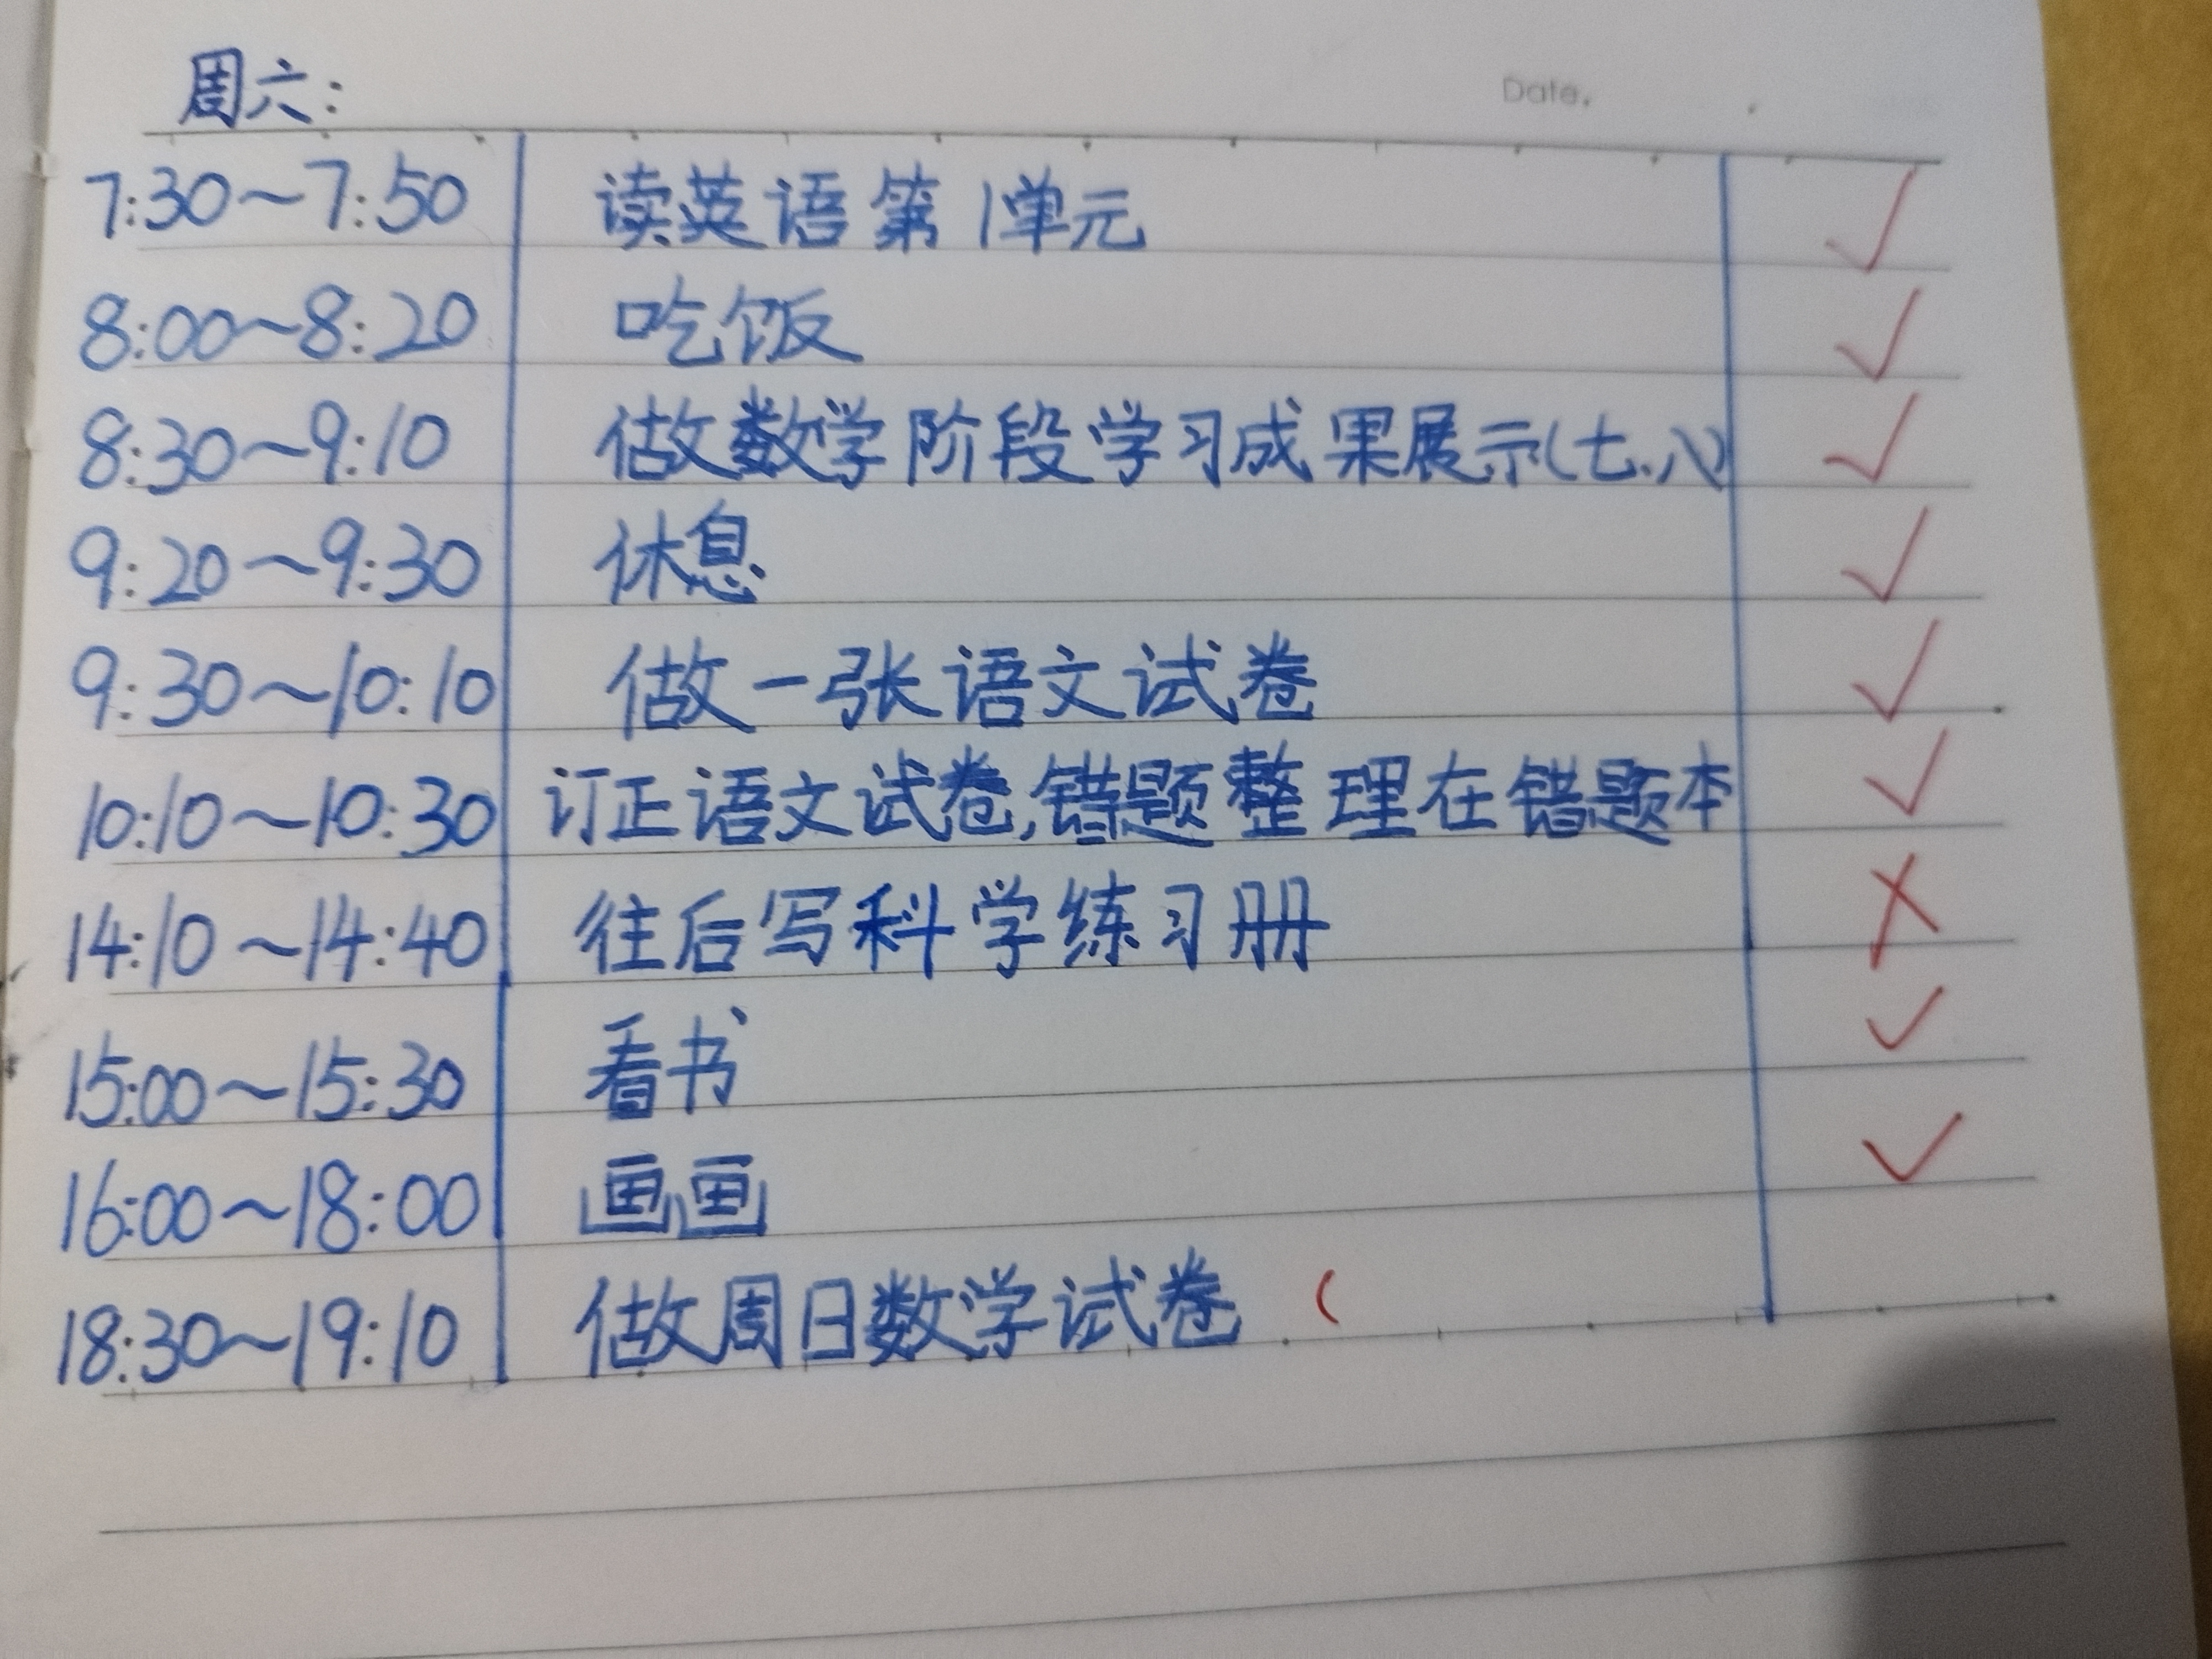 Date.
周六:
7:30~7:50 读英语第1单元 √
8:00~8:20 吃饭 √
8:30~9:10 做数学阶段学习成果展示(七、八) √
9:20~9:30 休息 √
9:30~10:10 做一张语文试卷 √
10:10~10:30 订正语文试卷,错题整理在错题本 √
14:10~14:40 往后写科学练习册 ×
15:00~15:30 看书 √
16:00~18:00 画画 √
18:30~19:10 做周日数学试卷 (